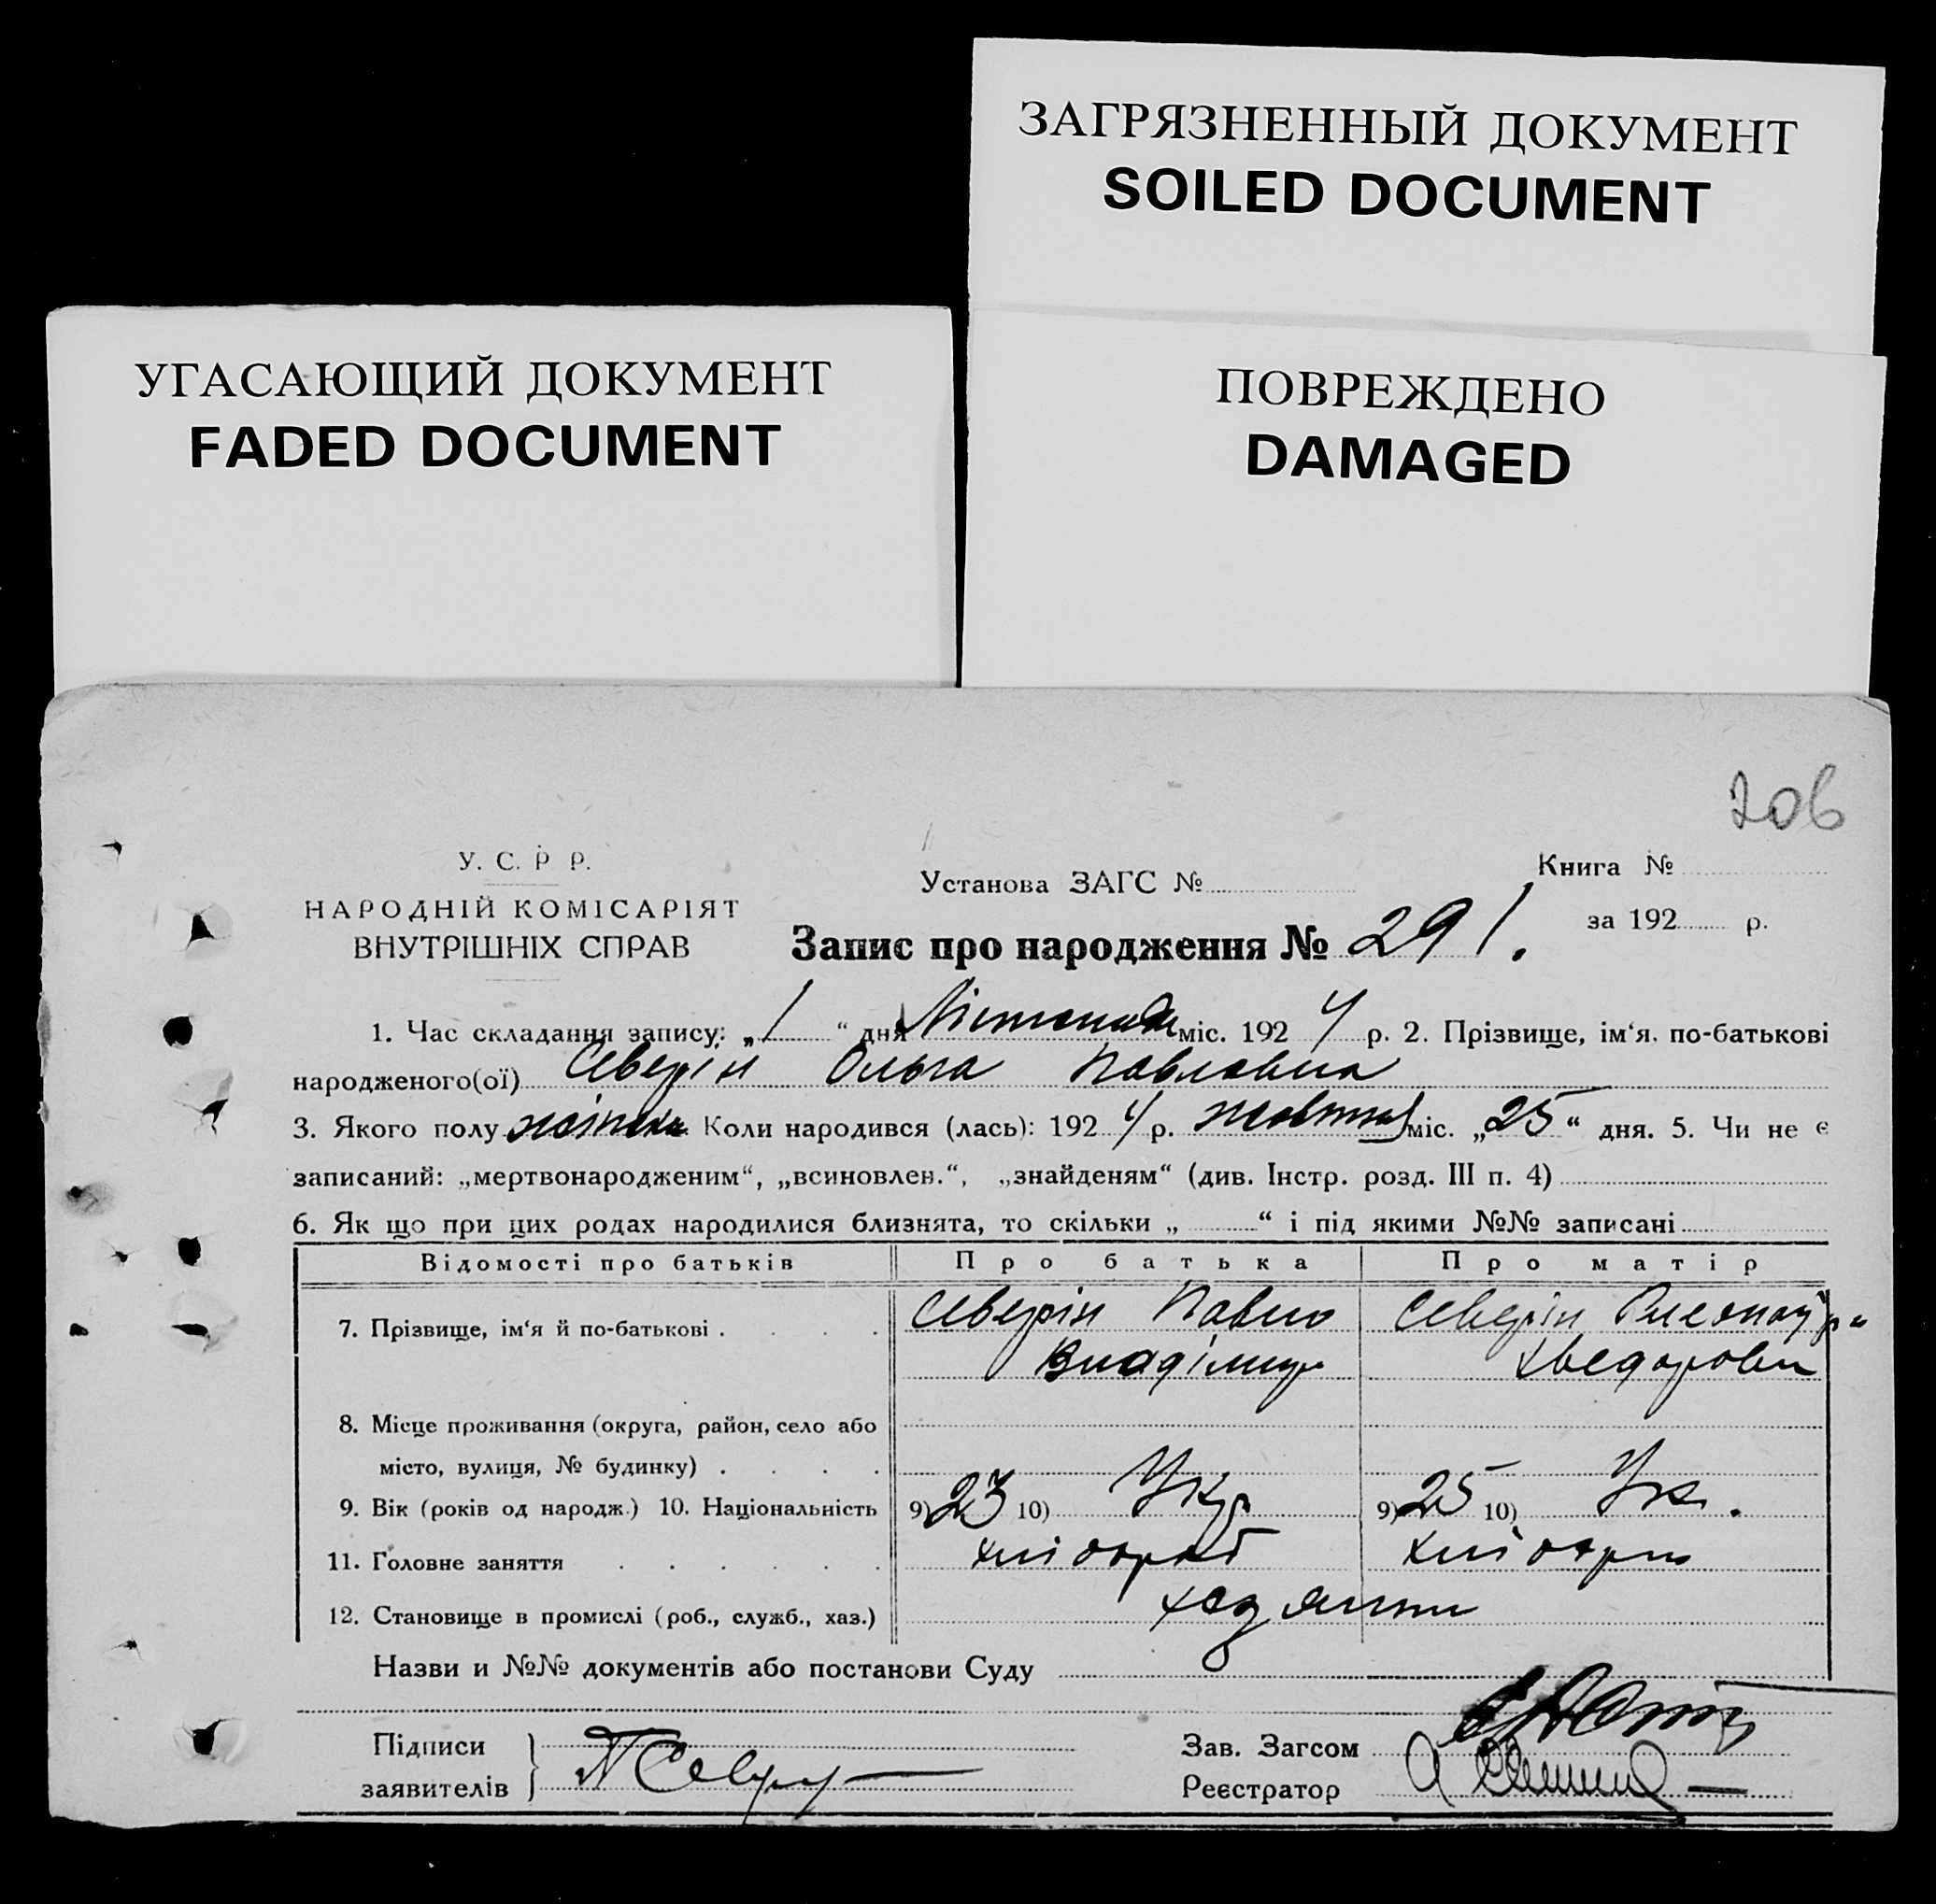 ЗАГРЯЗНЕННЫЙ ДОКУМЕНТ
SOILED DOCUMENT
УГАСАЮЩИЙ ДОКУМЕНТ
FADED DOCUMENT
ПОВРЕЖДЕНО
DAMAGED
206
У. С. Р Р.
НАРОДНІЙ КОМІСАРІЯТ
ВНУТРІШНІХ СПРАВ
Установа ЗАГС №
Запис про народження № 291.
Книга №
за 192 р.
1. Час складання запису: „1“ дня Лістопада міс. 1924 р. 2. Прізвище, ім‘я, по-батькові
народженого(ої) Северін Ольга Павловна
3. Якого полу жіноч. Коли народився (лась): 1924 р. жовтня міс. „25“ дня. 5. Чи не є
записаний: „мертвонародженим“, „всиновлен.“, „знайденям“ (див. Інстр. розд. III п. 4)
6. Як що при цих родах народилися близнята, то скільки „ “ і під якими №№ записані
Відомості про батьків Про батька Про матір
7. Прізвище, ім‘я й по-батькові . . . . Северін Павло Северін
Владімир Хведоровн
8. Місце проживання (округа, район, село або
місто, вулиця, № будинку) . . . .
9. Вік (років од народж.) 10. Національність 9) 23 10) Укр 9) 25 10) Ук.
11. Головне заняття . . . . . . хлібороб
12. Становище в промислі (роб., служб., хаз.)
Назви и №№ документів або постанови Суду
Підписи
заявителів } П Север
Зав. Загсом
Реєстратор